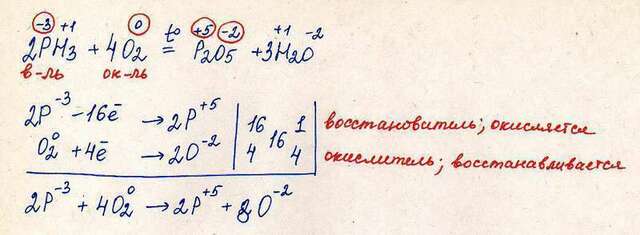 -3 +1 0 t° +5 -2 +1 -2
2PH3 + 4O2 = P2O5 + 3H2O
в-ль ок-ль
2P⁻³ - 16ē → 2P⁺⁵ | 16 | 16 | 1 | восстановитель; окисляется
O2⁰ + 4ē → 2O⁻² | 4 | | 4 | окислитель; восстанавливается
2P⁻³ + 4O2⁰ → 2P⁺⁵ + 8O⁻²